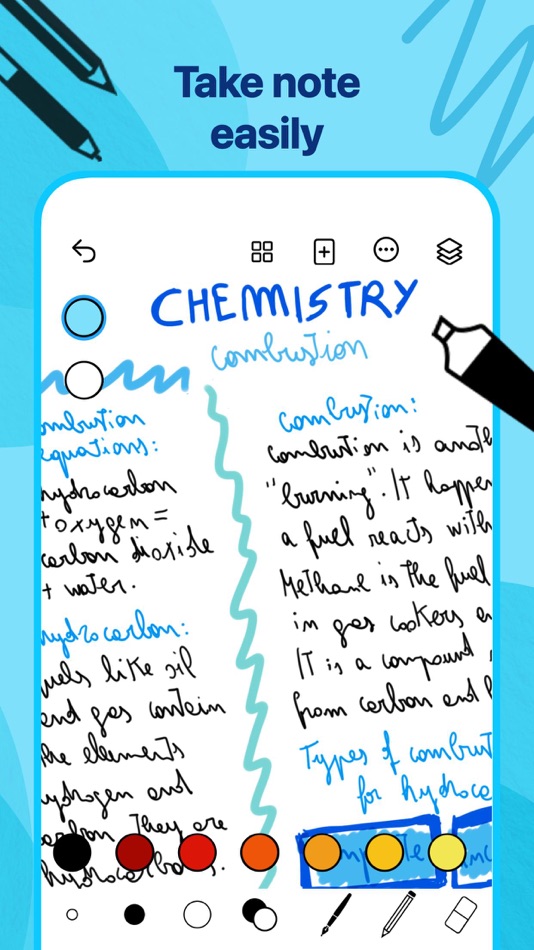 Take note
easily
CHEMISTRY
combustion
ombustion
equations:
hydrocarbon
+ oxygen =
carbon dioxide
+ water.
hydrocarbon:
uels like oil
and gas contain
the elements
ydrogen and
carbon. They are
hydrocarbons.
combustion:
combustion is anoth
"burning". It happen
a fuel reacts with
Methane is the fuel
in gas cookers an
It is a compound
from carbon and h
Types of combust
for hydroca